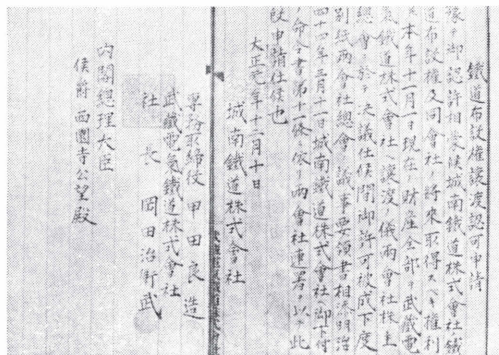 鐵道布設權讓渡認可申請
豫テ御認許相蒙候城南鐵道株式會社鐵
道布設權及同會社ノ將來取得スベキ權利
本年十一月一日現在ノ財産全部ヲ武蔵電
氣鐵道株式會社ヘ讓渡ノ儀兩會社株主
總會ニ於テ決議仕候間御許可被成下度
別紙兩會社總會ノ議事要領書相添明治
四十四年三月十一日城南鐵道株式會社御下付
命令書第十一條ニ依リ兩會社連署ヲ以テ此
段申請仕候也
大正元年十二月十日
城南鐵道株式會社
專務取締役 甲田良造
武藏電氣鐵道株式會社
社長 岡田治衛武
內閣總理大臣
侯爵 西園寺公望殿